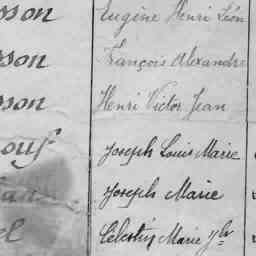 sson Eugène Henri Léon
sson François Alexandre
sson Henri Victor Jean
ouf Joseph Louis Marie
Joseph Marie
el Célestin Marie Jh